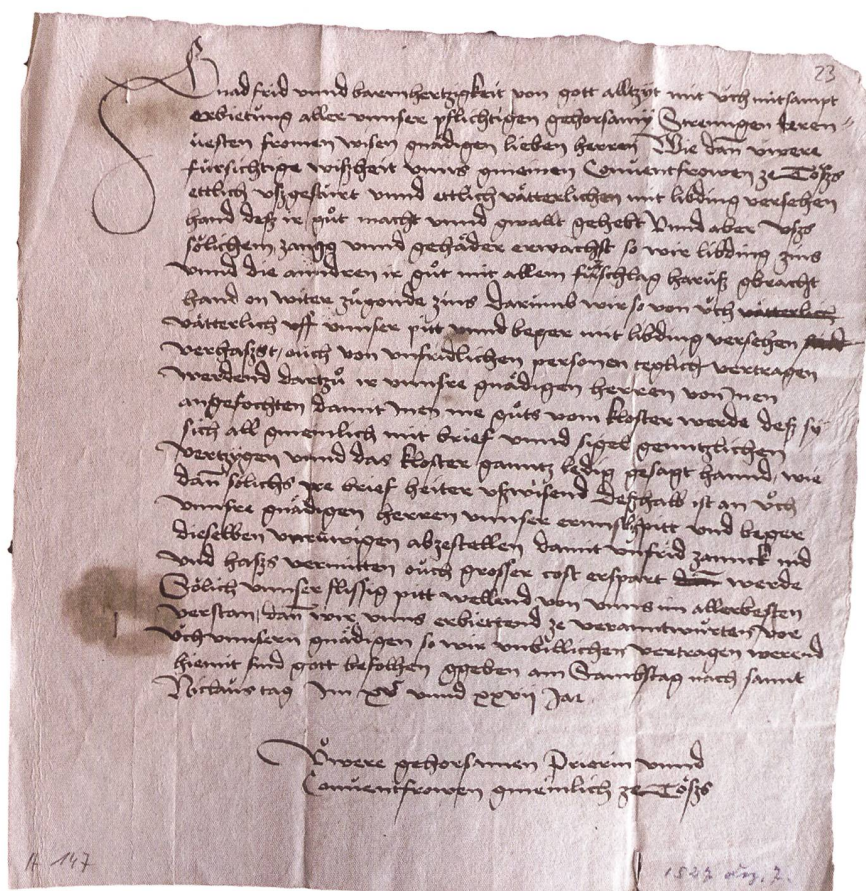 23
Gnad frid unnd barmhertzigkeit von gott alltzyt mit üch mitsampt
erbietung aller unnser pflichtigen gehorsamy Strenngen eeren
vesten fromen wisen gnädigen lieben herren Wie dañ üwere
fürsichtige wißheit unns gmeinen Conventfrowen ze Tößs
ettlich usgestürt unnd ettlich vätterlichen mit libding versehen
hand deß ir gůt macht unnd gwallt gehebt Unnd aber uszs
sölichem zangg unnd gehäder erwachst so wir libding zins
unnd die anndren ir gůt mit allem fürschlag harusz gbracht
hand on witer zůgonde zins darumb wir so von üch vätterlich
vätterlich uff unnser pitt unnd beger mit libding versehen
verhaszst, ouch von unfridlichen personen teglich vertragen
werdend dartzů ir unnsre gnädigen herren von inen
angefochten damit inen me gůts vom kloster werde deß sy
sich all gmeinlich mit brief unnd sigel genntzlichen
vertzygen unnd das kloster ganntz ledig gesagt hannd, wie
dañ sölichs ire brief heiter uswisend deßhalb ist an üch
unnsre gnädigen herren unnser ernnstlich pitt und beger
dieselben unrüwigen abzestellen damit unfrid zannck nid
und haszs vermitten ouch grosser cost erspart werde
Sölich unnser flissig pitt wellend von unns im allerbesten
verstan, dañ wir unns erbiettend ze verantwürten vor
üch unnsern gnädigen so wir unbillichen vertragen werend
hiemit sind gott befolhen ggeben am Sambstag nach sannt
Niclaus tag Im xv unnd xxvii Jar
Üwere gehorsamen Priorin unnd
Conventfrowen gmeinlich ze Tößs
A 147
1527 Dez. 7.